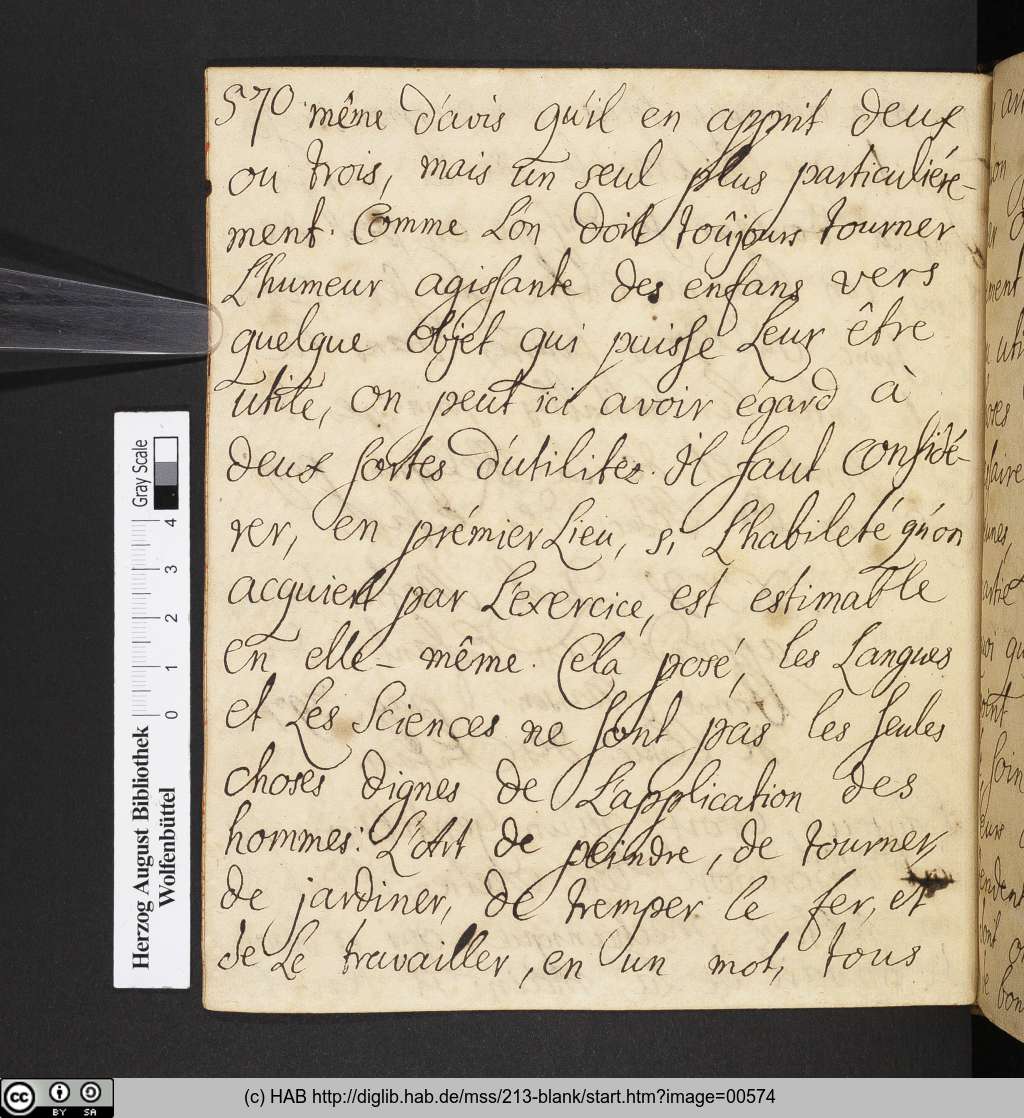 570 même d'avis qu'il en apprit deux
ou trois, mais un seul plus particuliére-
ment. Comme L'on doit toûjours tourner
L'humeur agissante des enfans vers
quelque objet qui puisse Leur être
utile, on peut ici avoir égard à
deux sortes d'utilitez. Il faut considé-
rer, en prémier Lieu, si L'habileté qu'on
acquiert par L'exercice, est estimable
en elle-même. Cela posé, les Langues
et Les Sciences ne sont pas les seules
choses dignes de L'application des
hommes: L'Art de peindre, de tourner,
de jardiner, de tremper le fer, et
de Le travailler, en un mot, tous
Herzog August Bibliothek
Wolfenbüttel
0 1 2 3 4
Gray Scale
CC BY SA
(c) HAB http://diglib.hab.de/mss/213-blank/start.htm?image=00574